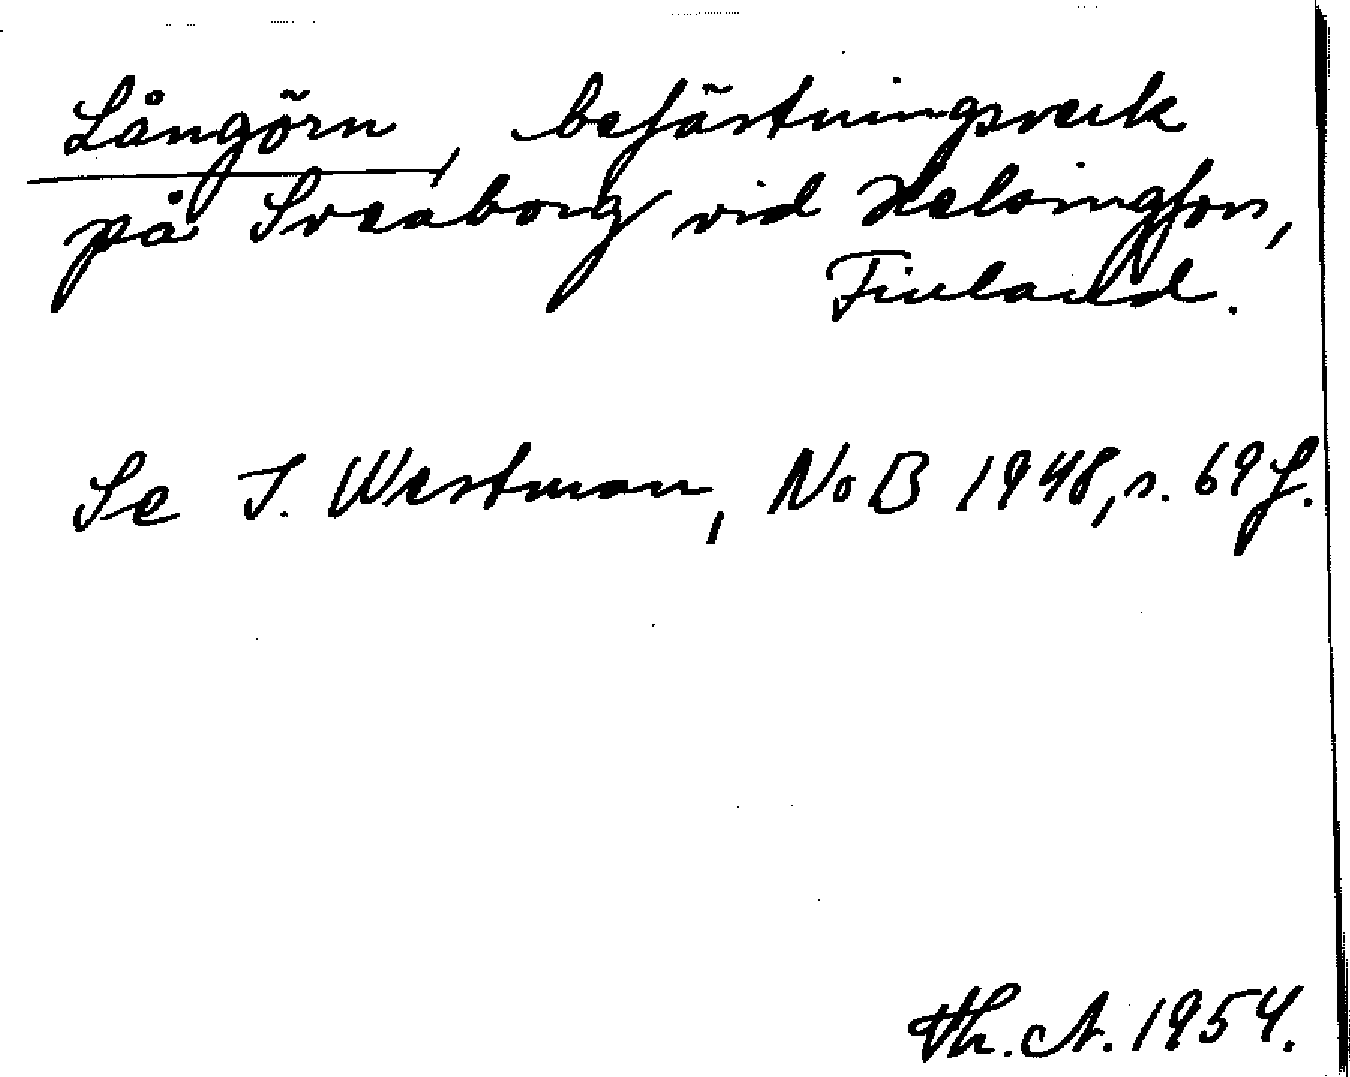 Långörn, befästningsverk
på Sveaborg vid Helsingfors,
Finland.
Se I. Westman, NoB 1948, s. 69 f.
Th. A. 1954.